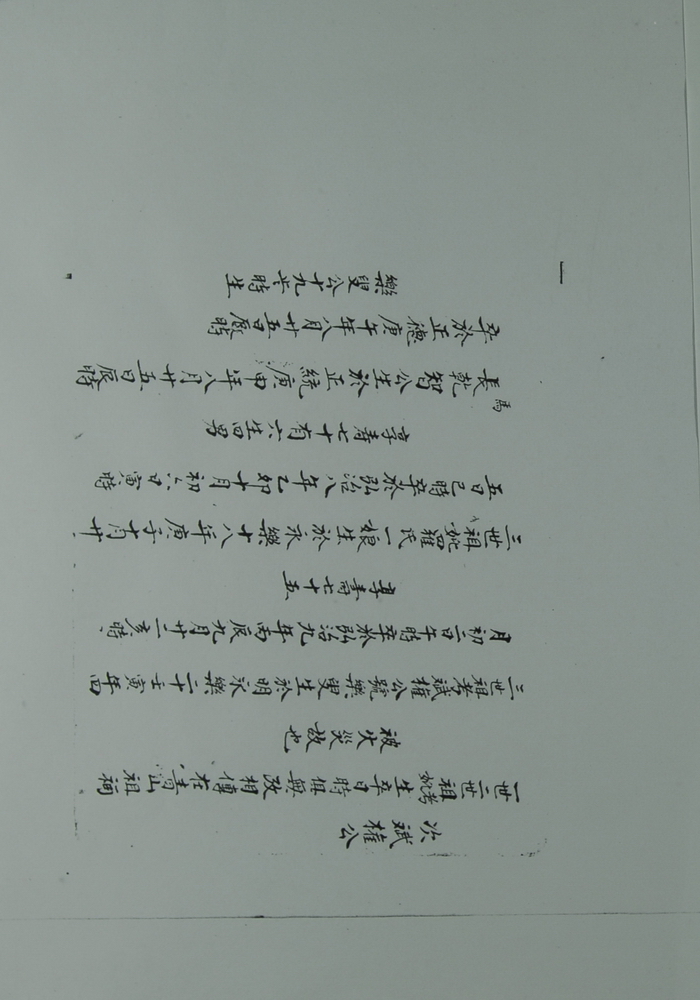 次斌權公
一世二世祖考妣生卒日時俱無改相傳在青山祖祠
被火災故也
三世祖考斌權公號樂叟生於明永樂二十壬寅年四
月初二日午時卒於弘治九年丙辰九月廿二亥時
享壽七十五
三世祖妣羅氏一娘生於永樂十八年庚子十月廿
五日己時卒於弘治八年己卯十月初六日寅時
享壽七十有六生四男
馬
長乾智公生於正統庚申年八月廿五日辰時
卒於正德庚午年八月廿五日辰時
樂叟公十九歲時生